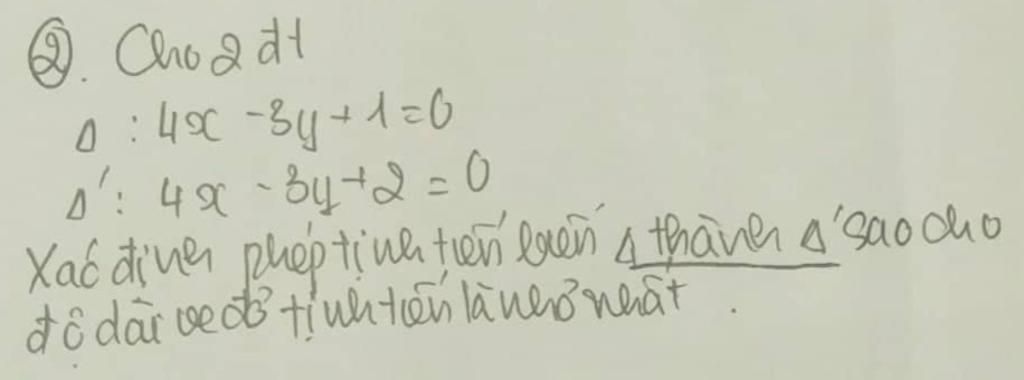 ②. Cho 2 đt
Δ : 4x - 3y + 1 = 0
Δ' : 4x - 3y + 2 = 0
Xác định phép tịnh tiến biến Δ thành Δ' sao cho
độ dài vectơ tịnh tiến là nhỏ nhất .